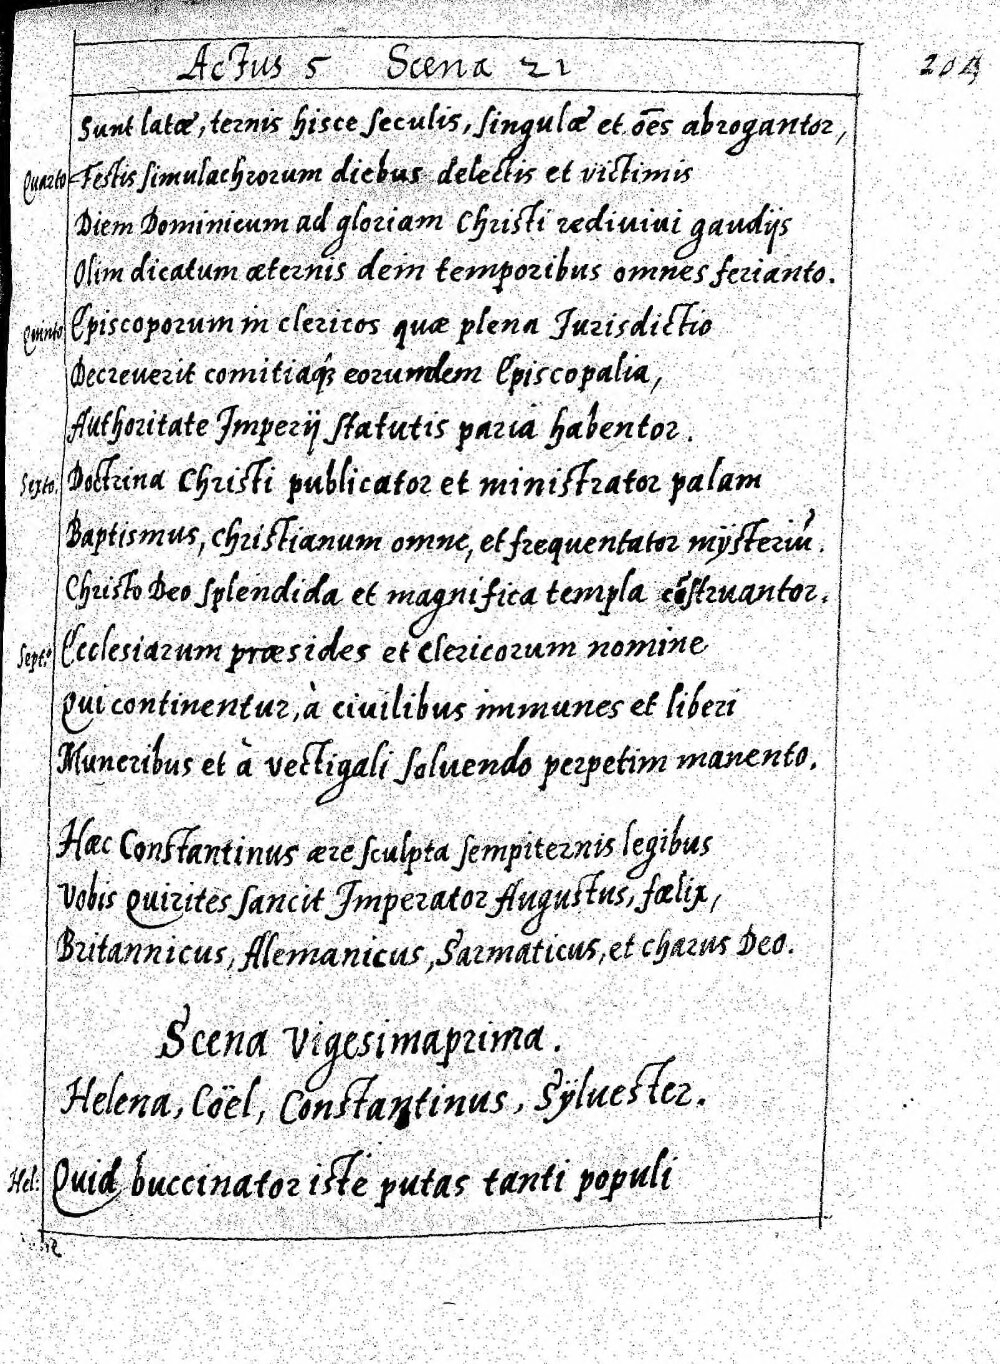 Actus 5 Scena 21
204
Sunt latæ, ternis hisce seculis, singulæ et oēs abrogantor,
Quarto Festis simulachrorum diebus delectis et victimis
Diem Dominicum ad gloriam Christi rediuiui gaudijs
Olim dicatum æternis dein temporibus omnes ferianto.
Quinto Episcoporum in clericos quæ plena Jurisdictio
Decreuerit comitiaq₃ eorumdem Episcopalia,
Authoritate Imperij statutis paria habentor.
Sexto. Doctrina Christi publicator et ministrator palam
Baptismus, christianum omne, et frequentator mÿsteriū.
Christo Deo splendida et magnifica templa cōstruantor.
Sept:º Ecclesiarum præsides et clericorum nomine
Qui continentur, à ciuilibus immunes et liberi
Muneribus et à vectigali soluendo perpetim manento.
Hæc Constantinus ære sculpta sempiternis legibus
Vobis Quirites sancit Imperator Augustus, fœlix,
Britannicus, Alemanicus, Sarmaticus, et charus Deo.
Scena vigesimaprima.
Helena, Cöel, Constantinus, Sÿluester.
Hel: Quid buccinator iste putas tanti populi